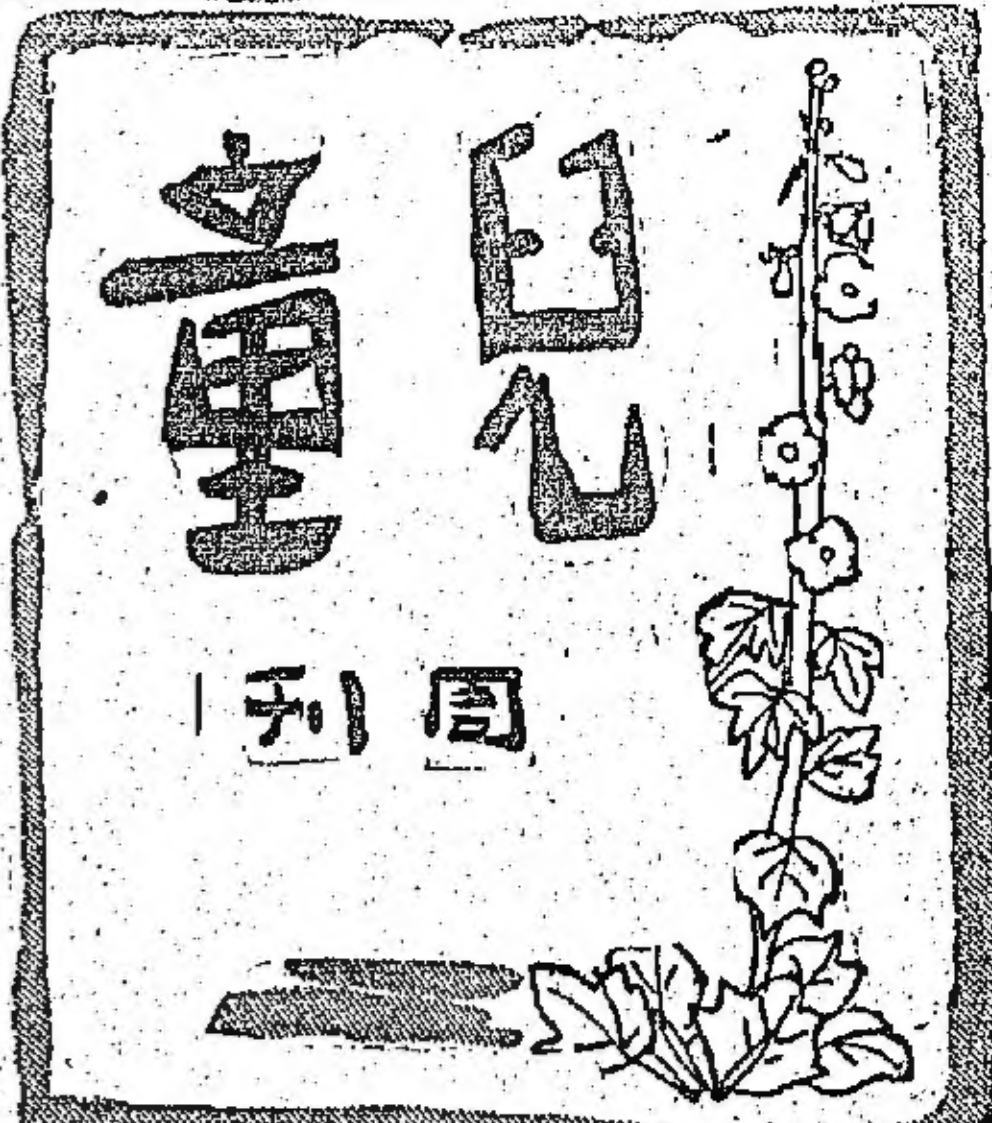 兒童
周刊